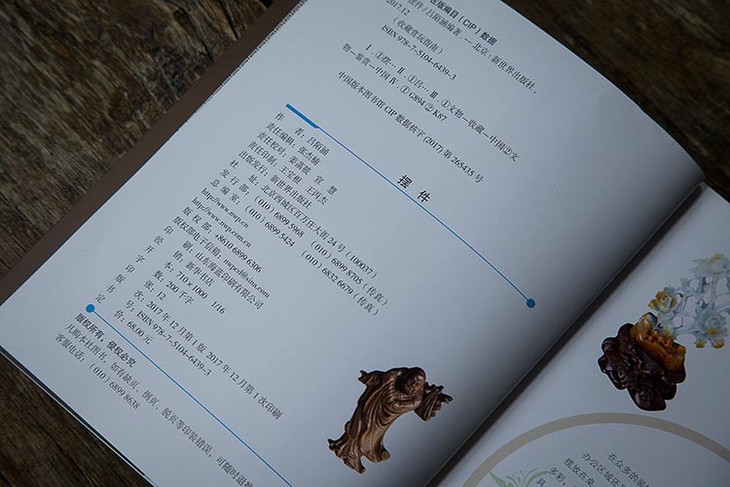 在版编目（CIP）数据
摆件 / 吕陌涵编著. -- 北京 : 新世界出版社,
2017.12
（收藏赏玛指南）
ISBN 978-7-5104-6439-3
Ⅰ.①摆… Ⅱ.①吕… Ⅲ.①文物－收藏－中国②文
物－鉴赏－中国 Ⅳ.① G894 ② K87
中国版本图书馆 CIP 数据核字 (2017) 第 265435 号
摆 件
作 者：吕陌涵
责任编辑：张杰楠
责任校对：姜菡筱 宣 慧
责任印制：王宝根 王丙杰
出版发行：新世界出版社
社 址：北京西城区百万庄大街 24 号（100037）
发 行 部：（010）6899 5968 （010）6899 8705（传真）
总 编 室：（010）6899 5424 （010）6832 6679（传真）
http://www.nwp.cn
http://www.nwp.com.cn
版 权 部：+8610 6899 6306
版权部电子信箱：nwpcd@sina.com
印 刷：山东海蓝印刷有限公司
经 销：新华书店
开 本：710×1000 1/16
字 数：200 千字
印 张：12
版 次：2017 年 12 月第 1 版 2017 年 12 月第 1 次印刷
书 号：ISBN 978-7-5104-6439-3
定 价：68.00 元
版权所有，侵权必究
凡购本社图书，如有缺页、倒页、脱页等印装错误，可随时退换
客服电话：（010）6899 8638
在众多的
办公区域
摆放在桌
多彩，
具